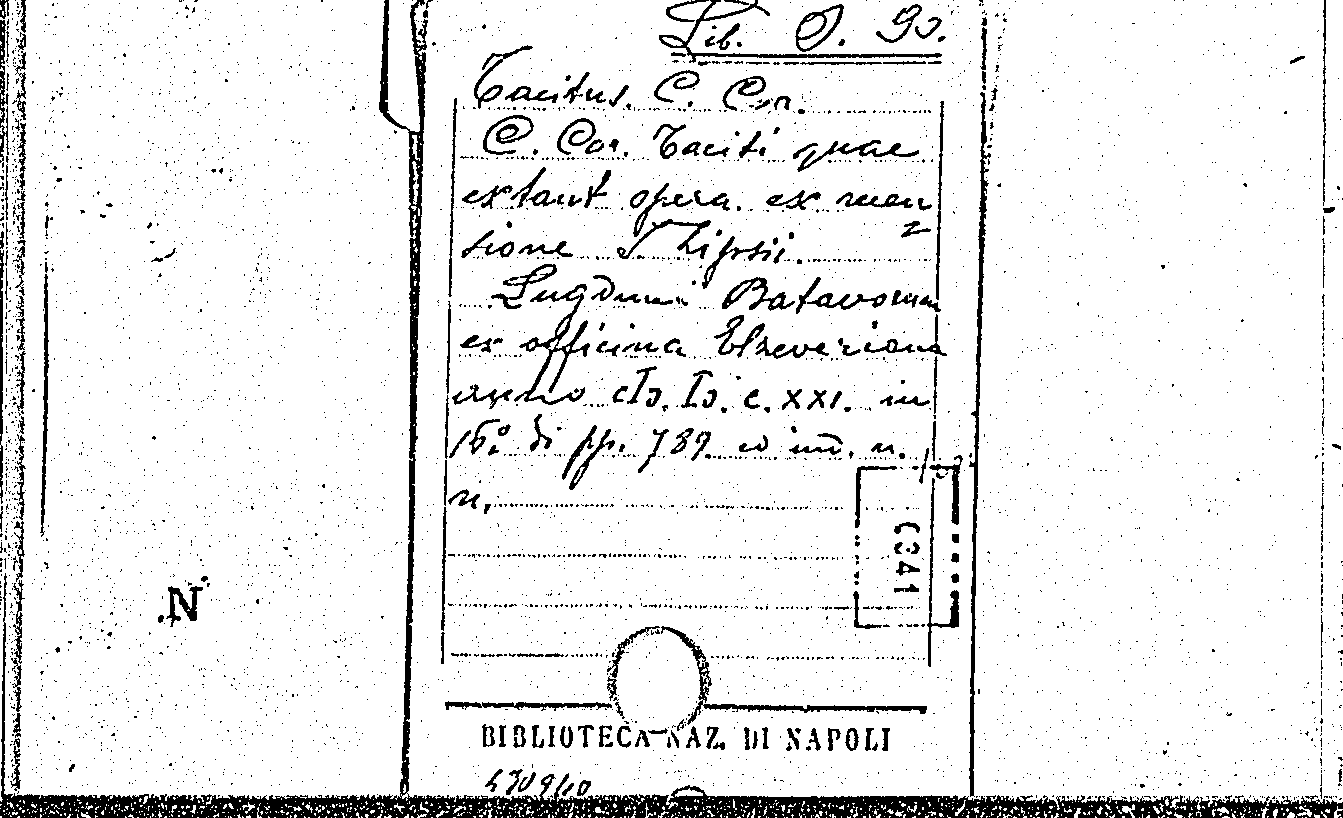 Lib. O. 90.
Tacitus. C. Cor.
C. Cor. Taciti quae
extant opera. ex recen
=
sione I. Lipsii.
Lugduni Batavorum
ex officina Elzeveriana
anno cIɔ. Iɔ. c. XXI. in
16.º di pp. 789. ed ind. n.
n.
(341
N
BIBLIOTECA NAZ. DI NAPOLI